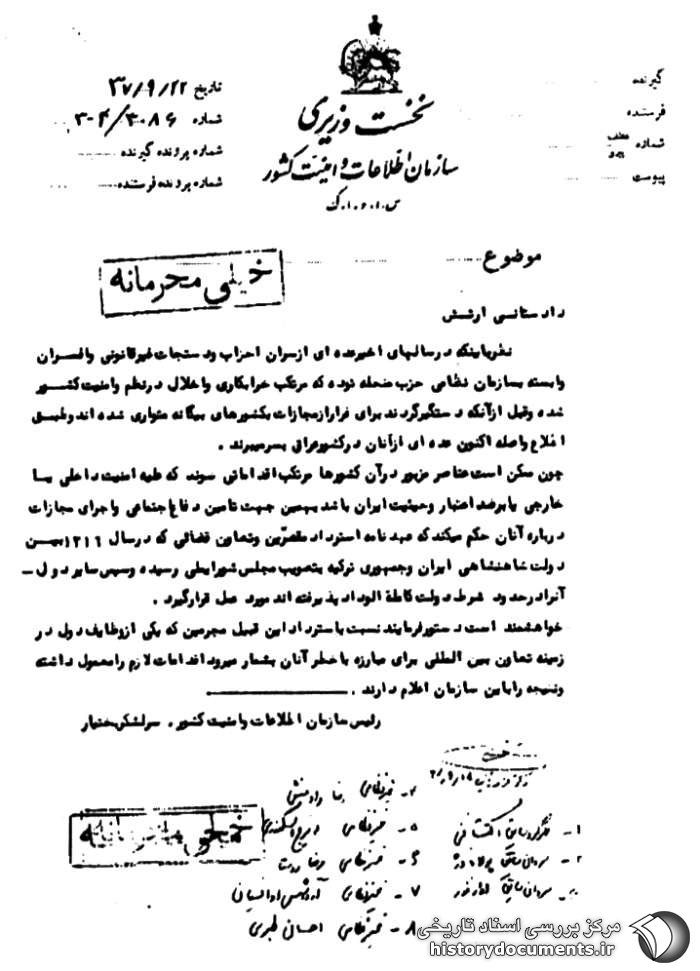 نخست وزیری
سازمان اطلاعات و امنیت کشور
س.ا.و.ا.ک
گیرنده
فرستنده
شماره عطف
پیوست
تاریخ ۳۷/۹/۲۲
شماره ۳۰۴/۳۰۸۶
شماره پرونده گیرنده
شماره پرونده فرستنده
موضوع
خیلی محرمانه
دادستانی ارتش
نظر باینکه در سالهای اخیر عده ای از سران احزاب و دستجات غیرقانونی و افسران
وابسته بسازمان نظامی حزب منحله توده که مرتکب خرابکاری و اخلال در نظم و امنیت کشور
شده و قبل از آنکه دستگیر گردند برای فرار از مجازات بکشورهای بیگانه متواری شده اند و طبق
اطلاع واصله اکنون عده ای از آنان در کشور عراق بسر میبرند .
چون ممکن است عناصر مزبور در آن کشورها مرتکب اقداماتی شوند که علیه امنیت داخلی یا
خارجی یا بر ضد اعتبار و حیثیت ایران باشد بهمین جهت تامین دفاع اجتماعی و اجرای مجازات
درباره آنان حکم میکند که عهدنامه استرداد مقصرین و تعاون قضائی که در سال ۱۳۱۶ بین
دولت شاهنشاهی ایران و جمهوری ترکیه بتصویب مجلس شورایملی رسیده و سپس سایر دول
آنرا در حدود شرط دولت کاملة الوداد پذیرفته اند مورد عمل قرار گیرد .
خواهشمند است دستور فرمایند نسبت باسترداد این قبیل مجرمین که یکی از وظایف دول در
زمینه تعاون بین المللی برای مبارزه با خطر آنان بشمار میرود اقدامات لازم را معمول داشته
و نتیجه را باین سازمان اعلام دارند .
رئیس سازمان اطلاعات و امنیت کشور . سرلشکر بختیار
۱-
۲-
۴- غیرنظامی رضا رادمنش
۵- غیرنظامی ایرج اسکندری
۶- غیرنظامی رضا روستا
۷- غیرنظامی
۸- غیرنظامی احسان طبری
مرکز بررسی اسناد تاریخی
historydocuments.ir